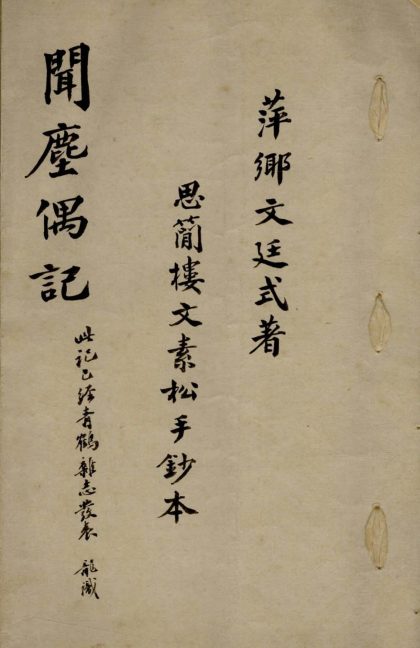 萍鄉文廷式著
思簡樓文素松手鈔本
聞塵偶記
此記已經青鶴雜志發表 龍識